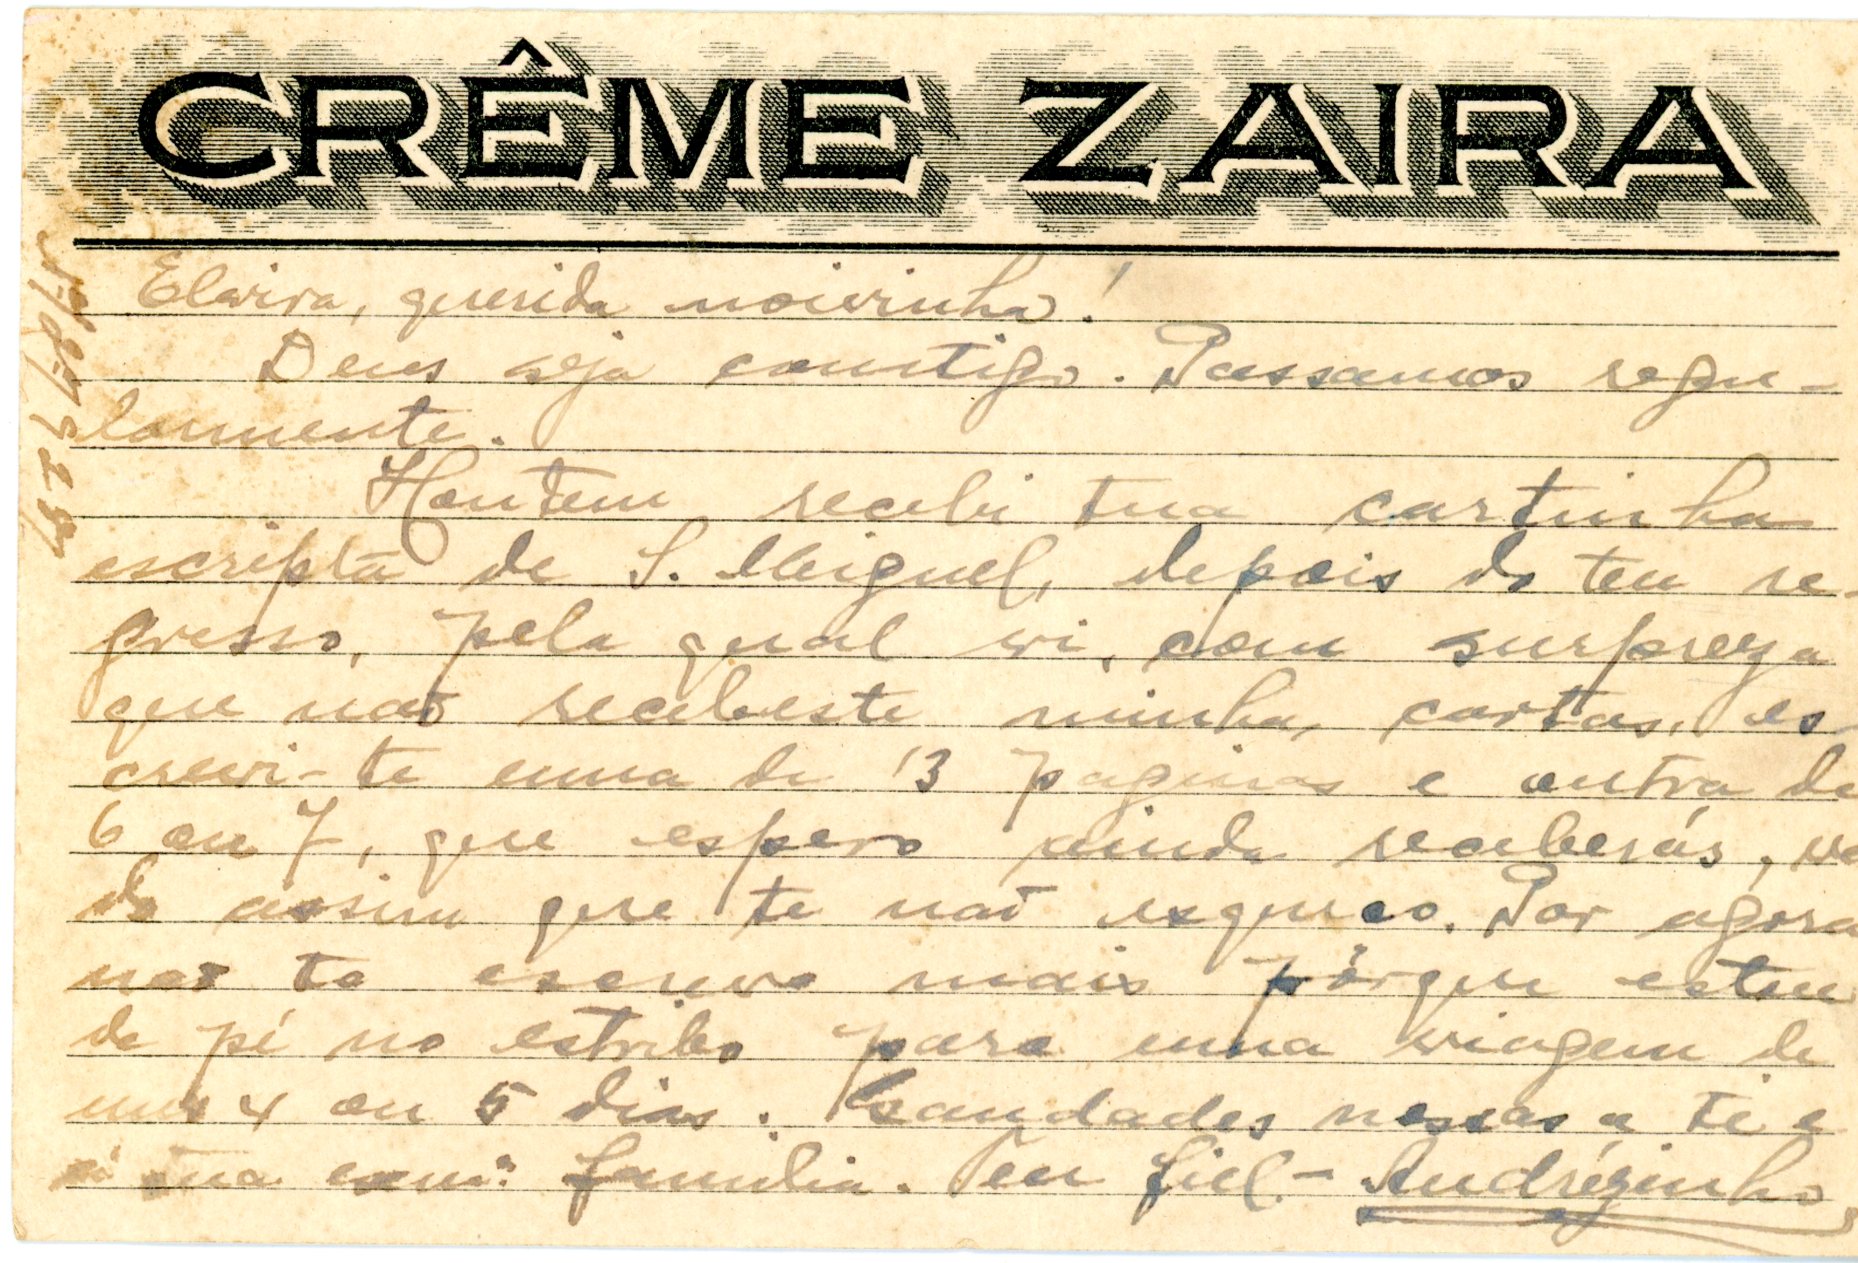 CRÊME ZAIRA
Elvira, querida noivinha!
Deus seja comtigo. Passamos regu-
larmente.
Hontem recebi tua cartinha
escripta de S. Miguel, depois do teu re-
gresso, pela qual vi, com surpreza
que naõ recebeste minhas cartas, es-
crevi-te uma de 13 paginas e outra de
6 ou 7, que espero ainda receberás, ven
do assim que te naõ esqueço. Por agora
naõ te escrevo mais pórque estou
de pé no estribo para uma viagem de
uns 4 ou 5 dias. Saudades nossas a ti e
á tua exmª familia. Teu fiel - Andrézinho